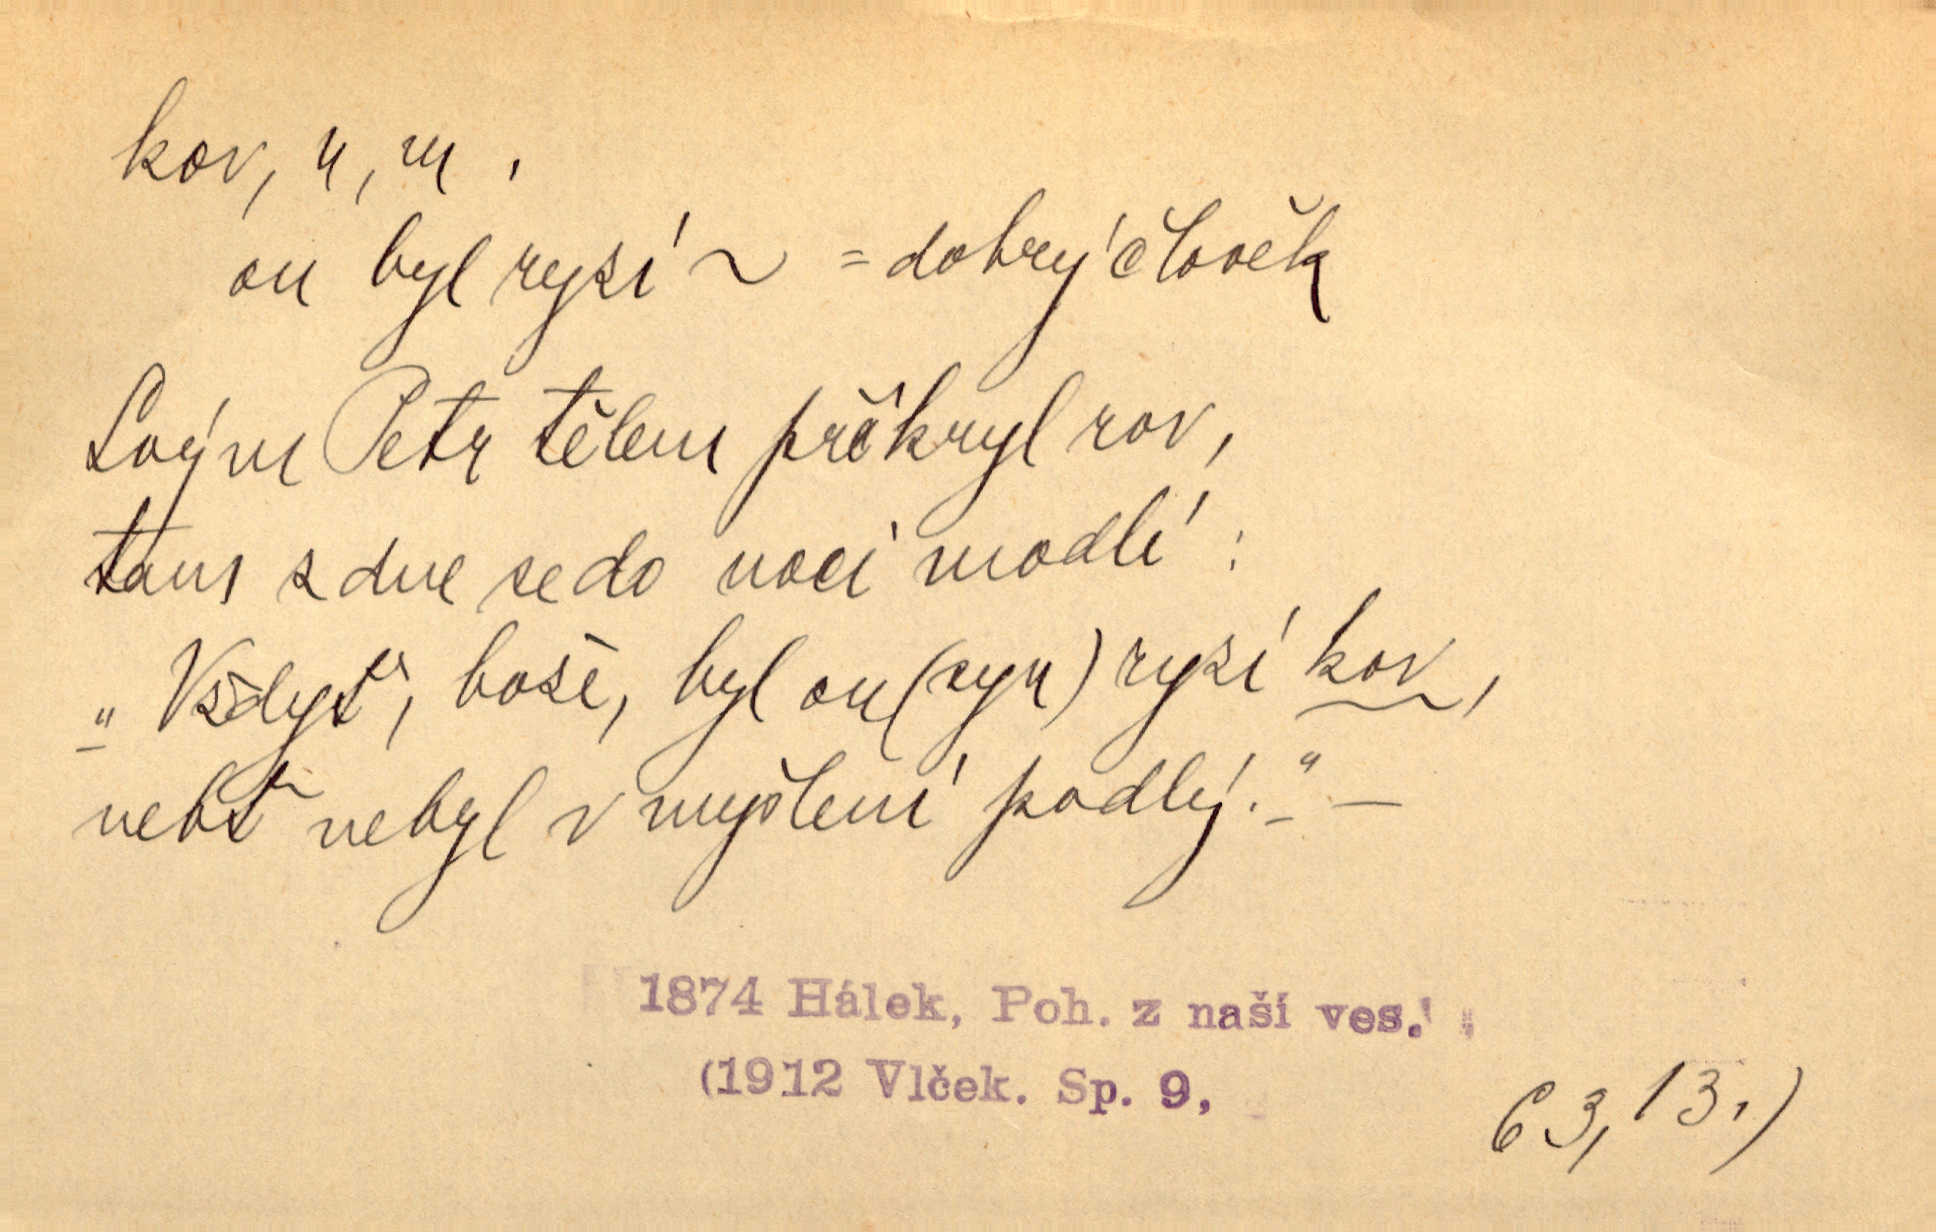 kov, u, m.
on byl ryzí ~ = dobrý člověk
Svým Petr tělem přikryl rov,
tam z dne se do noci modlí:
„Vždyť, bože, byl on (syn) ryzí kov,
nebť nebyl v myšlení podlý.“ —
1874 Hálek, Poh. z naší ves.
(1912 Vlček. Sp. 9,
63, 13.)